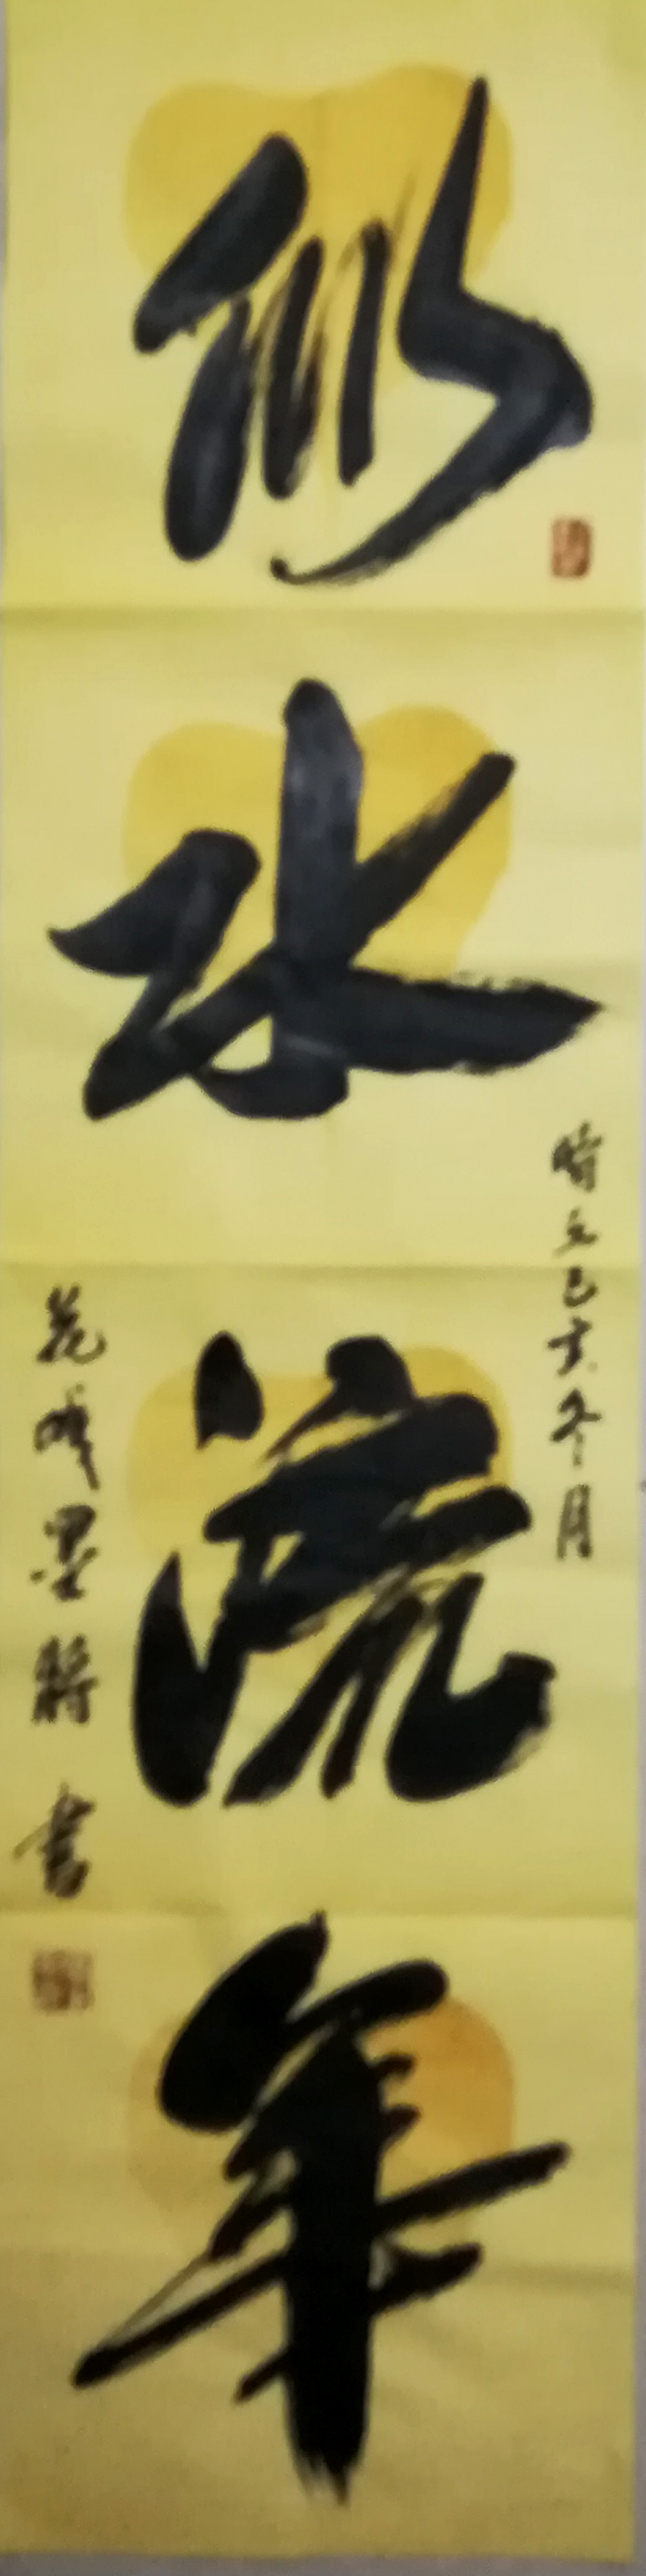 似水流年
時在己亥冬月
墨将書